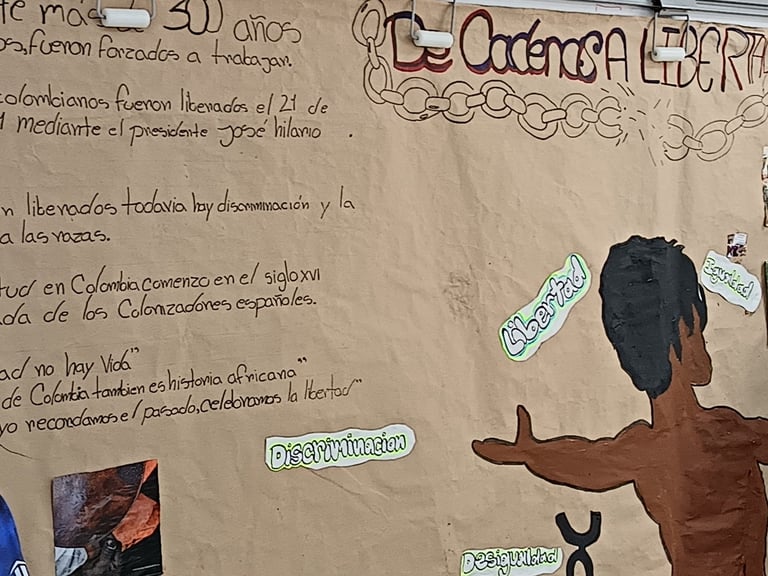 más de 300 años
os, fueron forzados a trabajar.
colombianos fueron liberados el 21 de
1 mediante el presidente José hilario .
n liberados todavia hay discriminación y la
a las razas.
tud en Colombia comenzo en el siglo XVI
da de los Colonizadores españoles.
ad no hay Vida"
de Colombia tambien es historia africana"
yo recondamos el pasado, celebramos la libertad"
De Cadenas A LIBERTA
Libertad
Igualdad
Discriminacion
Desigualdad